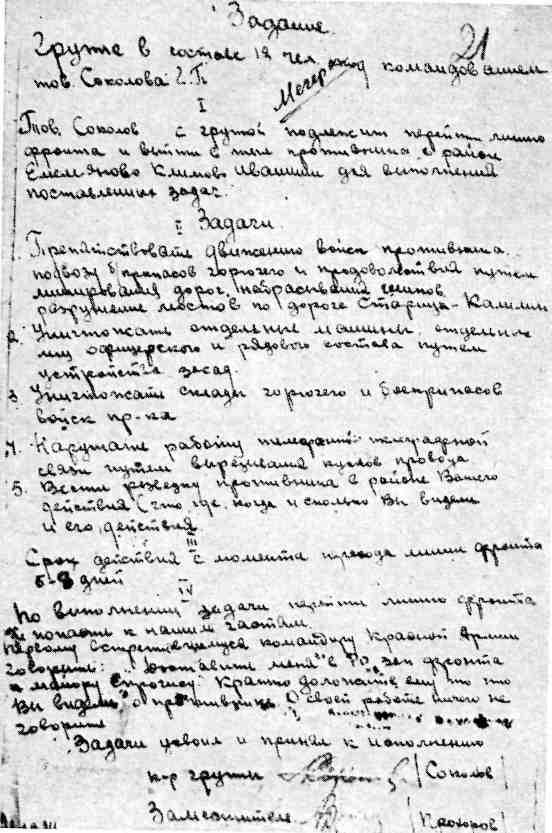 Задание.
21
Группе в составе 12 чел. под командованием
тов. Соколова Г. П.
I
Тов. Соколов с группой подлежит перейти линию
фронта и выйти в тыл противника в район
Емельяново Климово Ивашики для выполнения
поставленных задач.
II Задачи.
Препятствовать движению войск противника
подвозу б/припасов горючего и продовольствия путем
минирования дорог, набрасывания шипов
разрушение мостов по дороге Старица - Калинин
2. Уничтожать отдельные машины, отдельных
лиц офицерского и рядового состава путем
устройства засад.
3. Уничтожать склады горючего и боеприпасов
войск пр-ка
4. Нарушать работу телефонно-телеграфной
связи путем вырезывания кусков провода
5. Вести разведку противника в районе Вашего
действия (что, где, когда и сколько Вы видели
и его действия
III
Срок действия с момента перехода линии фронта
5-8 дней
IV
По выполнении задачи перейти линию фронта
и попасть к нашим частям.
Первому встретившемуся командиру Красной Армии
говорите: "Доставьте меня в Р.О. зап фронта
к майору Спрогису" Кратко доложите ему то что
Вы видели о противнике. О своей работе ничего не
говорите
Задачи усвоил и принял к исполнению
к-р группы (Соколов)
Заместитель (Прохоров)